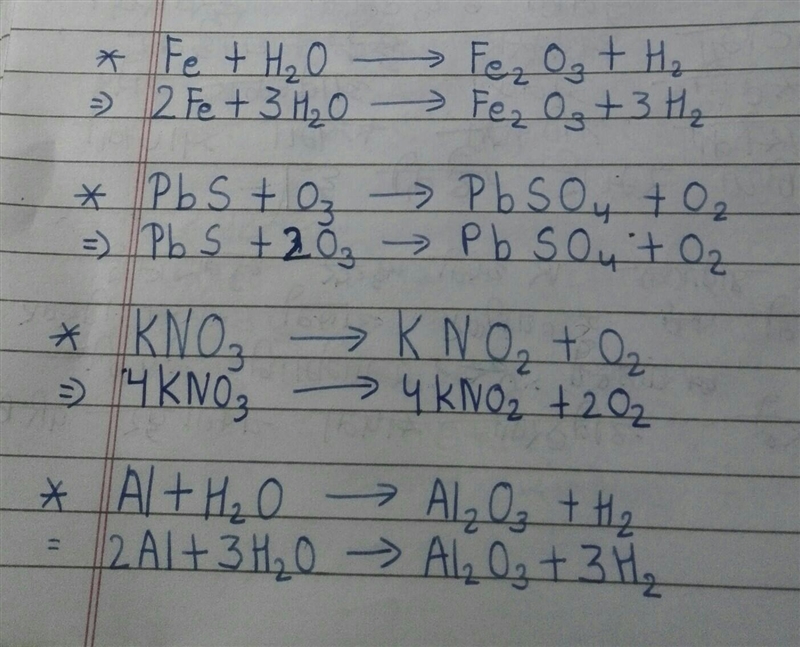 * Fe + H₂O ⟶ Fe₂O₃ + H₂
⇒ 2Fe + 3H₂O ⟶ Fe₂O₃ + 3H₂
* PbS + O₃ → PbSO₄ + O₂
⇒ PbS + 2O₃ → PbSO₄ + O₂
* KNO₃ ⟶ KNO₂ + O₂
⇒ 4KNO₃ ⟶ 4KNO₂ + 2O₂
* Al + H₂O ⟶ Al₂O₃ + H₂
= 2Al + 3H₂O ⟶ Al₂O₃ + 3H₂